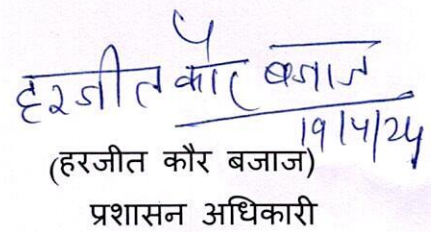 हरजीत कौर बजाज
19/4/24
(हरजीत कौर बजाज)
प्रशासन अधिकारी